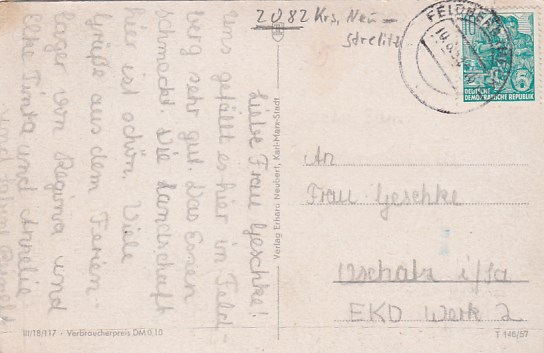 2082 Krs. Neu-
strelitz
FELDBERG
DEUTSCHE
DEMOKRATISCHE REPUBLIK
Liebe Frau Geschke!
Uns gefällt es hier in Feld-
berg sehr gut. Das Essen
schmeckt. Die Landschaft
hier ist schön. Viele
Grüße aus dem Ferien-
lager von Regina und
Elke Tinta und Annelie
Verlag Erhard Neubert, Karl-Marx-Stadt
An
Frau Geschke
Oschatz i/Sa
EKD Werk 2
III/18/117 - Verbraucherpreis DM 0,10
T 146/57